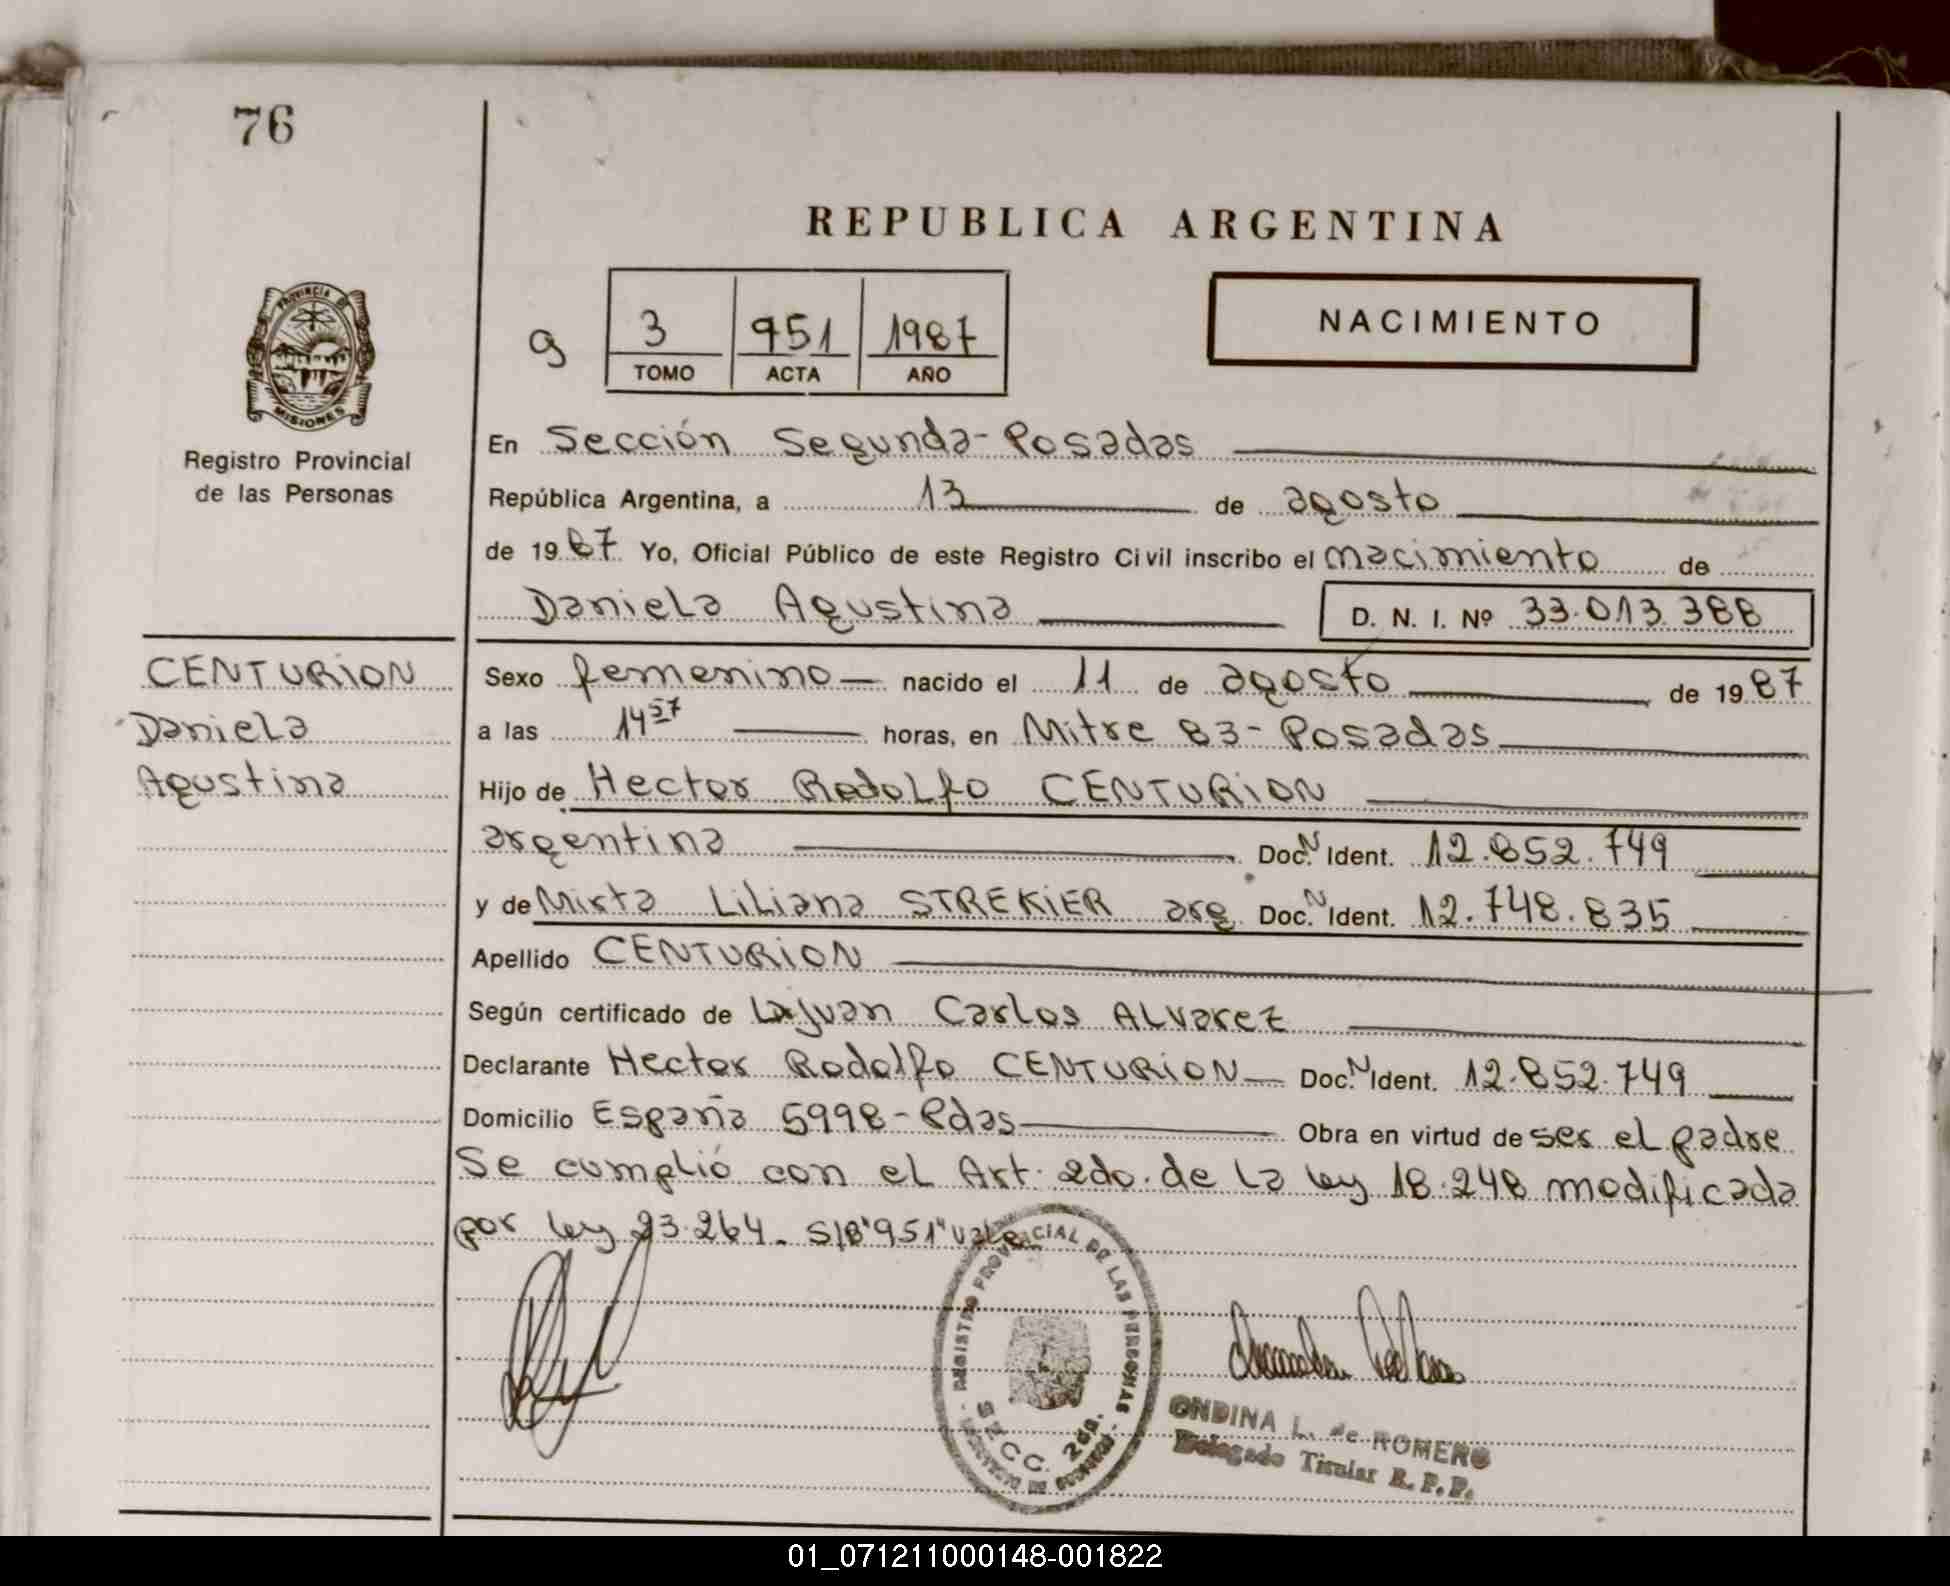 76
REPUBLICA ARGENTINA
PROVINCIA DE
MISIONES
Registro Provincial
de las Personas
9
3 951 1987
TOMO ACTA AÑO
NACIMIENTO
En Sección Segunda-Posadas
República Argentina, a 13 de agosto
de 1987 Yo, Oficial Público de este Registro Civil inscribo el nacimiento de
Daniela Agustina D. N. I. Nº 33.013.388
CENTURION
Daniela
Agustina
Sexo femenino nacido el 11 de agosto de 1987
a las 14 57 horas, en Mitre 83-Posadas
Hijo de Hector Rodolfo CENTURION
argentina Doc. N Ident. 12.852.749
y de Mirta Liliana STREKIER arg Doc. N Ident. 12.748.835
Apellido CENTURION
Según certificado de Juan Carlos ALvarez
Declarante Hector Rodolfo CENTURION Doc. N Ident. 12.852.749
Domicilio España 5998-Pdas Obra en virtud de ser el padre
Se cumplió con el Art. 2do. de la ley 18.248 modificada
por ley 23.264. S/B "951" vale
REGISTRO PROVINCIAL DE LAS PERSONAS
SECC. 2da.
ONDINA L. de ROMERO
Delegado Titular R. P. P.
01_071211000148-001822